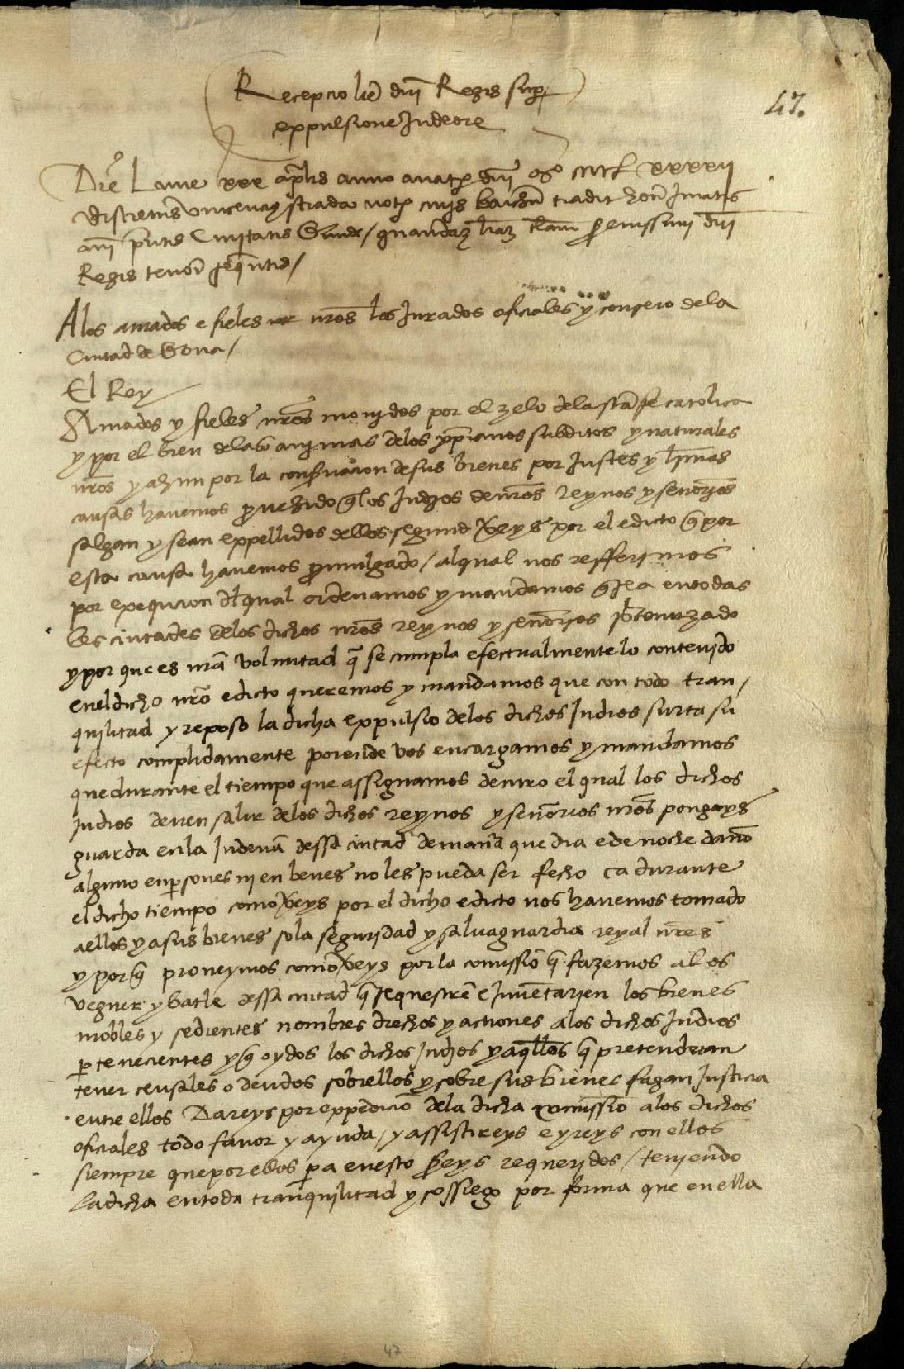 Recepcio lre dni Regis sup
expulsione Judeore
47.
Die Lune xxx aplis anno a nat dni Mo CCCCL xxxxii
discretus vincencius strada not
Civitatis Gerunde / quandam lram serenissimi dni
Regis tenoris sequentis /
A los amados e fieles nros los Jurados oficiales y consejo dela
Ciutad de Gerona /
El Rey
Amados y fieles nros movidos por el zelo dela sta fe catolica
y por el bien delas animas delos xpianos subditos y naturales
nros y ahun por la conservacion de sus bienes por justes y
causas havemos provehido q los Judios de nros reynos y señorios
salgan y sean expellidos dellos segund vereys por el edicto q por
esta causa havemos promulgado / al qual nos refferimos
por exequcion dl qual ordenamos y mandamos q sea en todas
les ciutades delos dichos nros reynos y señorios
y por que es nra voluntad q se cumpla efectualmente lo contenido
enel dicho nro edicto queremos y mandamos que con todo tran /
quilitad y reposo la dicha expulsio delos dichos Judios surta su
efecto complidamente por ende vos encargamos y mandamos
que durante el tiempo que assignamos dentro el qual los dichos
Judios deven salir delos dichos reynos y señorios nros pongays
guarda en la Juderia dessa ciutad de manera que dia e de noche daño
alguno en psones ni en benes no les pueda ser fecho ca durante
el dicho tiempo como vereys por el dicho edicto nos havemos tomado
a ellos y a sus bienes so la seguridad y salvaguardia reyal nres
y porq proveymos como vereys por la comissio q fazemos a los
veguer y batle dessa ciutad q sequestre e inventarien los bienes
mobles y sedientes nombres drechos y actiones a los dichos Judios
ptenecientes y q oydos los dichos Judios y aqllos q pretenderan
tener censales o deudos sobrellos y sobre sus bienes fagan Justicia
entre ellos Dareys por expedicio dela dicha comissio alos dichos
oficiales todo favor y ayuda / y assistireys e yreys con ellos
siempre que por ellos pa en esto sereys requeridos / teniendo
la dicha en toda tranquilitad y sossiego por forma que en ella
47